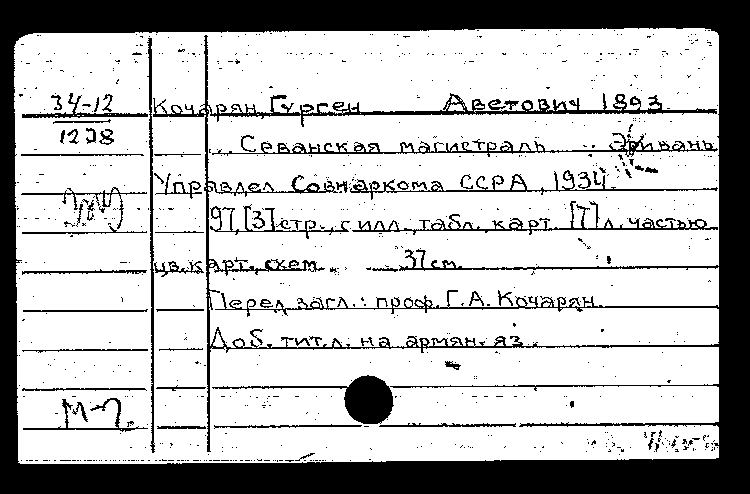 34-12
1278
Кочарян, Гурген Аветович 1893
... Севанская магистраль. Эривань
Управдел Совнаркома ССРА, 1934.
97, [3] стр., с илл., табл., карт. [7] л. частью
цв. карт., схем. 37 см.
Перед загл.: проф. Г.А. Кочарян.
Доб. тит. л. на армян. яз.
М-